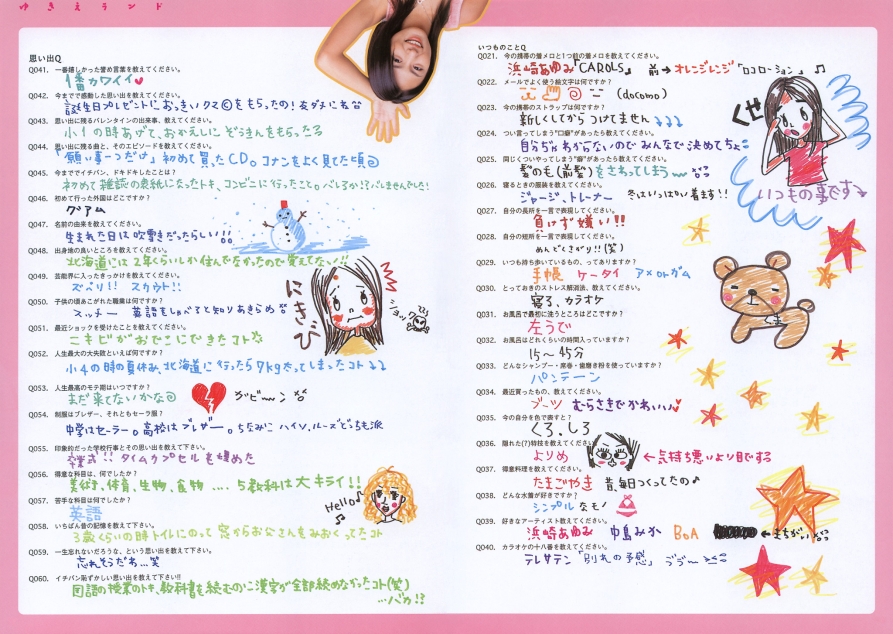 ゆきえランド
思い出Q
Q041. 一番嬉しかった誉め言葉を教えてください。
幡カワイイ♥
Q042. 今までで感動した思い出を教えてください。
誕生日プレゼントにおっきいクマ©をもらったの!友ダチにネ
Q043. 思い出に残るバレンタインの出来事、教えてください。
小1の時あげて、おかえしにぞうきんをもらったる
Q044. 思い出に残る曲と、そのエピソードを教えてください。
「願い事一つだけ」初めて買ったCD。コナンをよく見てた頃
Q045. 今まででイチバン、ドキドキしたことは?
初めて雑誌の表紙になったトキ、コンビニに行ったこと。バレるか!?バレませんでした!
Q046. 初めて行った外国はどこですか?
グアム
Q047. 名前の由来を教えてください。
生まれた日は吹雪だったらしい!!
Q048. 出身地の良いところを教えてください。
北海道には2年くらいしか住んでなかったので覚えてない!!
Q049. 芸能界に入ったきっかけを教えてください。
ズバリ!! スカウト!!
Q050. 子供の頃あこがれた職業は何ですか?
スッチー 英語をしゃべると知りあきらめ
Q051. 最近ショックを受けたことを教えてください。
ニキビがおでこにできたコト
にきび
ショック
Q052. 人生最大の大失敗といえば何ですか?
小4の時の夏休み、北海道に行ったら7kg太ってしまったコト
Q053. 人生最高のモテ期はいつですか?
まだ来てないかな
ガビーン
Q054. 制服はブレザー、それともセーラ服?
中学はセーラー。高校はブレザー。ちなみにハイソ、ルーズどっちも派
Q055. 印象的だった学校行事とその思い出を教えて下さい。
卒業式!! タイムカプセルを埋めた
Q056. 得意な科目は、何でしたか?
美術、体育、生物、食物 .... 5教科は大キライ!!
Q057. 苦手な科目は何でしたか?
英語
Hello♪
Q058. いちばん昔の記憶を教えて下さい。
3歳くらいの時トイレにのって窓からお父さんをみおくってたコト
Q059. 一生忘れないだろうな、という思い出を教えて下さい。
忘れそうだわ...笑
Q060. イチバン恥ずかしい思い出を教えて下さい!!
国語の授業のトキ、教科書を読むのに漢字が全部読めなかったコト(笑)
...バカ!?
いつものことQ
Q021. 今の携帯の着メロと1つ前の着メロを教えてください。
浜崎あゆみ「CAROLS」 前→オレンジレンジ「ロコローション」♪♫
Q022. メールでよく使う絵文字は何ですか?
(docomo)
Q023. 今の携帯のストラップは何ですか?
新しくしてからつけてません
Q024. つい言ってしまう"口癖"があったら教えてください。
自らぢゃわからないのでみんなで決めてちょ
Q025. 同じくついやってしまう"癖"があったら教えてください。
髪のも(前髪)をさわってしまう〜
くせ
いつもの事です
Q026. 寝るときの服装を教えてください。
ジャージ、トレーナー 冬はいっぱい着ます!!
Q027. 自分の長所を一言で表現してください。
負けず嫌い!!
Q028. 自分の短所を一言で表現してください。
めんどくさがり!!(笑)
Q029. いつも持ち歩いているもの、ってありますか?
手帳 ケータイ アメorガム
Q030. とっておきのストレス解消法、教えてください。
寝る、カラオケ
くま
Q031. お風呂で最初に洗うところはどこですか?
左うで
Q032. お風呂はどれくらいの時間入っていますか?
15〜45分
Q033. どんなシャンプー・石鹸・歯磨き粉を使っていますか?
パンテーン
Q034. 最近買ったもの、教えてください。
ブーツ むらさきでかわいい♥
Q035. 今の自分を色で表すと?
くろ、しろ
Q036. 隠れた(?)特技を教えてください。
よりめ ←気持ち悪いより目できる
Q037. 得意料理を教えてください。
たまごやき 昔、毎日つくってたの♪
Q038. どんな水着が好きですか?
シンプルなモノ
Q039. 好きなアーティスト教えてください。
浜崎あゆみ 中島みか BoA ←まちがい
Q040. カラオケの十八番を教えてください。
テレサテン「別れの予感」 ゔゔ〜